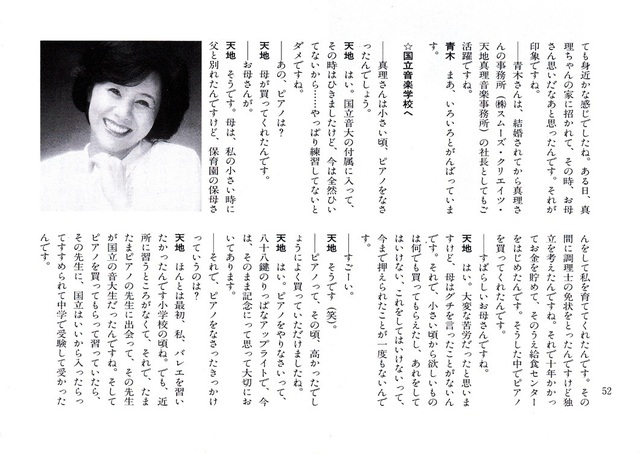 ても身近かな感じでしたね。ある日、真
理ちゃんの家に招かれて、その時、お母
さん思いだなあと思ったんです。それが
印象ですね。
――青木さんは、結婚されてから真理さ
んの事務所（㈱スムーズ・クリエイツ・
天地真理音楽事務所）の社長としてもご
活躍ですね。
青木　まあ、いろいろとがんばっていま
す。
☆国立音楽学校へ
――真理さんは小さい頃、ピアノをなさ
ったんでしょう。
天地　はい。国立音大の付属に入って、
その時はひきましたけど、今は全然ひい
てないから……やっぱり練習してないと
ダメですね。
――あの、ピアノは？
天地　母が買ってくれたんです。
――お母さんが。
天地　そうです。母は、私の小さい時に
父と別れたんですけど、保育園の保母さ
んをして私を育ててくれたんです。その
間に調理士の免状をとったんですけど独
立を考えたんですよね。それで十年かかっ
てお金を貯めて、そのうえ給食センター
をはじめたんです。そうした中でピアノ
を買ってくれたんです。
――すばらしいお母さんですね。
天地　はい。大変な苦労だったと思いま
すけど、母はグチを言ったことがないん
です。それで、小さい頃から欲しいもの
は何でも買ってもらえたし、あれをして
はいけない、これをしてはいけないって、
今まで押えられたことが一度もないんで
す。
――すごーい。
天地　そうです（笑）。
――ピアノって、その頃、高かったでし
ょうによく買っていただけましたね。
天地　はい。ピアノをやりなさいって、
八十八鍵のりっぱなアップライトで、今
は、そのまま記念にって思って大切にお
いてあります。
――それで、ピアノをなさったきっかけ
っていうのは？
天地　ほんとは最初、私、バレエを習い
たかったんです小学校の頃ね。でも、近
所に習うところがなくて、それで、たま
たまピアノの先生に出会って、その先生
が国立の音大生だったんですね。そして
ピアノを買ってもらって習っていたら、
その先生に、国立はいいから入ったらっ
てすすめられて中学で受験して受かった
んです。
52